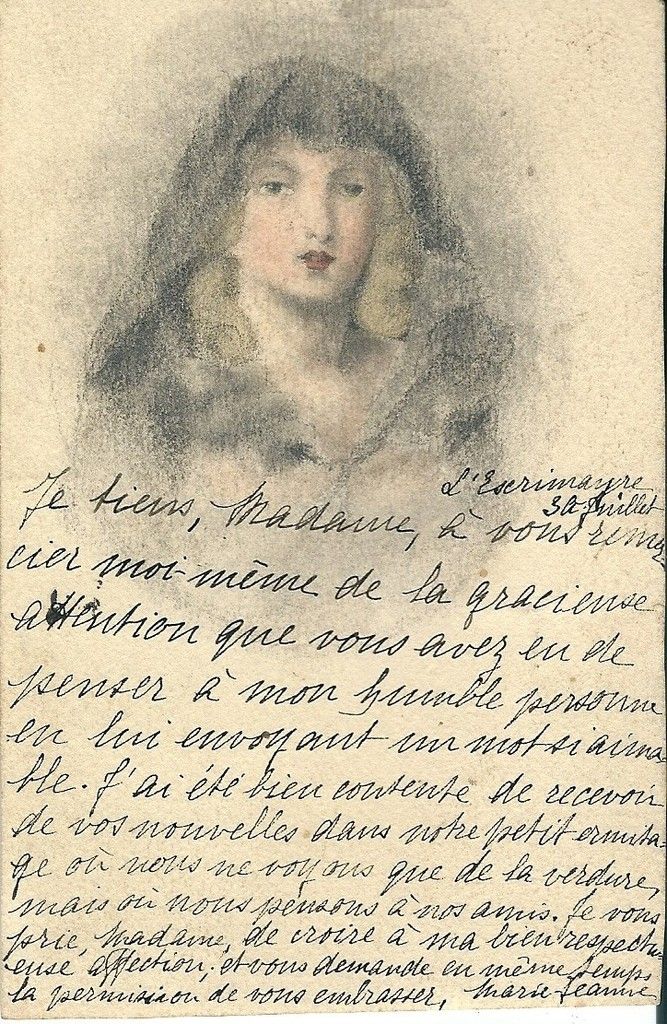 L'Escrimayre
30 Juillet
Je tiens, Madame, à vous remer
cier moi-même de la gracieuse
attention que vous avez eu de
penser à mon humble personne
en lui envoyant un mot si aima-
ble. J'ai été bien contente de recevoir
de vos nouvelles dans notre petit ermita-
ge où nous ne voyons que de la verdure,
mais où nous pensons à nos amis. Je vous
prie, Madame, de croire à ma bien respectu-
euse affection, et vous demande en même temps
la permission de vous embrasser, Marie-Jeanne